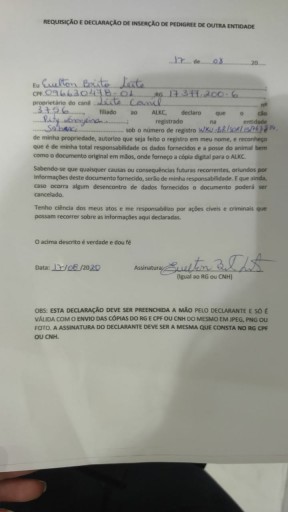 REQUISIÇÃO E DECLARAÇÃO DE INSERÇÃO DE PEDIGREE DE OUTRA ENTIDADE
17 de 08 20
Eu Euelton Brito Leite
CPF 096630498-01 RG 17 377.200-6
proprietário do canil Leite Camil nº
3726, filiado ao ALKC, declaro que o cão
registrado na entidade
sob o número de registro
de minha propriedade, autorizo que seja feito o registro em meu nome, e reconheço
que é de minha total responsabilidade os dados fornecidos e a posse do animal bem
como o documento original em mãos, onde forneço a cópia digital para o ALKC.
Sabendo-se que quaisquer causas ou consequências futuras recorrentes, oriundos por
informações deste documento fornecido, serão de minha responsabilidade. E que ainda,
caso ocorra algum desencontro de dados fornecidos o documento poderá ser
cancelado.
Tenho ciência dos meus atos e me responsabilizo por ações cíveis e criminais que
possam recorrer sobre as informações aqui declaradas.
O acima descrito é verdade e dou fé
Data: 17/08/2020 Assinatura:
(Igual ao RG ou CNH)
OBS: ESTA DECLARAÇÃO DEVE SER PREENCHIDA A MÃO PELO DECLARANTE E SÓ É
VÁLIDA COM O ENVIO DAS CÓPIAS DO RG E CPF OU CNH DO MESMO EM JPEG, PNG OU
FOTO. A ASSINATURA DO DECLARANTE DEVE SER A MESMA QUE CONSTA NO RG CPF
OU CNH.